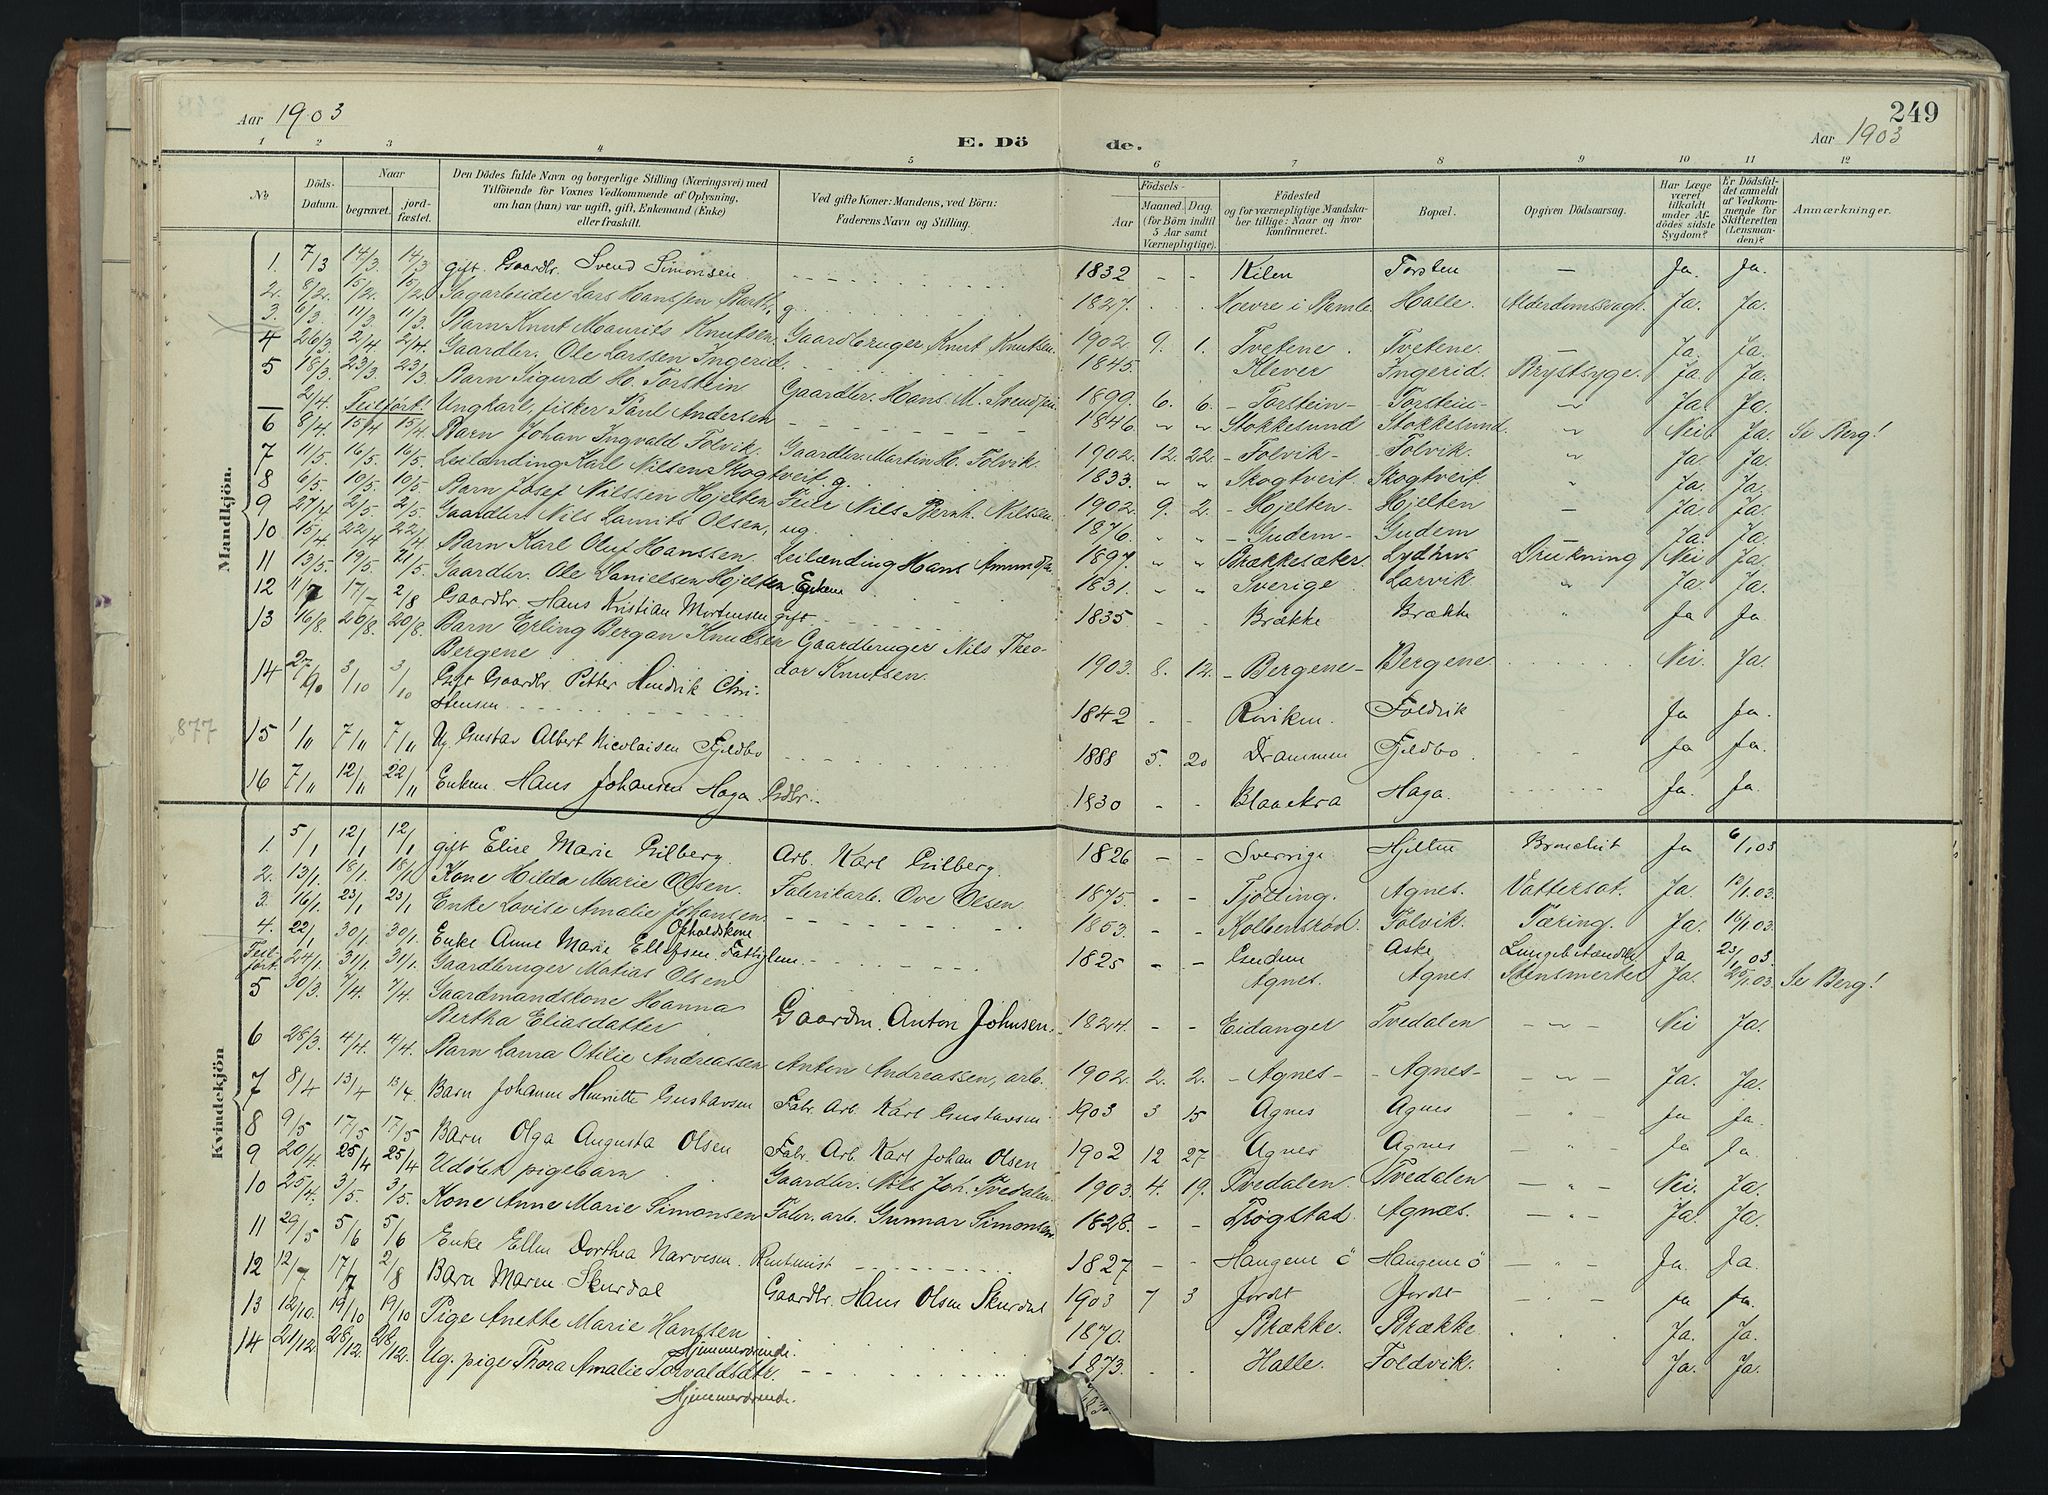 Aar 1903
E. Dö
de.
249
Aar 1903
1 2 3 4 5 6 7 8 9 10 11 12
No
Döds-Datum.
Naar
begravet.
jord-fæstet.
Den Dödes fulde Navn og borgerlige Stilling (Næringsvei) med
Tilföiende for Voxnes Vedkommende af Oplysning,
om han (hun) var ugift, gift, Enkemand (Enke)
eller fraskilt.
Ved gifte Koner: Mandens, ved Börn:
Faderens Navn og Stilling.
Födsels-
Aar
Maaned. Dag.
(for Börn indtil
5 Aar samt
Værnepligtige).
Födested
og for værnepligtige Mandska-
ber tillige: Naar og hvor
konfirmeret.
Bopæl.
Opgiven Dödsaarsag.
Har Læge
været
tilkaldt
under Af-
dödes sidste
Sygdom?
Er Dödsfal-
det anmeldt
af Vedkom-
mende for
Skifteretten
(Lensman-
den)?
Anmærkninger.
Mandkjön.
1. 7/3 14/3 14/3 gift. Gaardbr. Svend Simonsen 1832 - - Kilen Torsten - Ja. Ja.
2. 8/2 15/2. 15/2. Sagarbeider Lars Hansen Barth, g. 1827. Nevre i Bamle Halle. Alderdomssvagh. Ja. Ja.
3. 6/3 11/3. 11/3. Barn Knut Mauritz Knutsen. Gaardbruger Knut Knutsen. 1902. 9. 1. Tvetene. Tvetene. - Ja. Ja.
4 26/3. 2/4 2/4. Gaardbr. Ole Larssen Ingerid. 1845. Klever Ingerid. Brystsyge. Ja. Ja.
5 18/3. 23/3 23/3. Barn Sigurd H. Torstein Gaardbr. Hans M. Svendsen 1890. 6. 6. - Torstein - - Torstein - " Ja. Ja.
2/4. Feilført. Ungkarl, fisker Paul Andersen 1846. " " Stokkesund Stokkesund. " Nei. Ja. Se Berg!
6 8/4. 15/4 15/4. Barn Johan Ingvald Tolvik. Gaardbr. Martin H. Tolvik. 1902. 12. 22. - Tolvik - - Tolvik. " Ja. Ja.
7 11/5. 16/5. 16/5. Leilænding Karl Nilsen Skogtveit. g. 1833. " " Skogtveit. Skogtveit. " Ja. Ja.
8 6/5. 10/5. 10/5. Barn Josef Nilssen Hjelten. Nils Bernh. Nilssen. 1902. 9. 2. - Hjelten - - Hjelten - Ja. Ja.
9 27/4 2/5. 2/5. Gaardbr. Nils Laurits Olsen, ug. 1876. " " - Gudem - Gudem Ja. Ja.
10 15/4 22/4 22/4. Barn Karl Oluf Hanssen. Leilænding Hans 1897. " " Brækkesæter. Drukning Nei Ja.
11 13/5. 19/5. 21/5. Gaardbr. Ole Danielsen Hjelten 1831. " " Sverige. Larvik. " Ja. Ja.
12 11/7 17/7 2/8 Gaardbr. Hans Kristian Mortensen gift 1835. - - Brække Brække " Ja Ja
13 16/8. 20/8. 20/8. Barn Erling Bergan Knutsen Gaardbruger Nils Theo-
Bergene dor Knutsen. 1903. 8. 12. - Bergene - Bergene. Nei. Ja.
14 27/9 3/10 3/10 Gift Gaardbr. Petter Hindrik Chri-
stensen 1842 - - Roviken. Foldvik Ja Ja.
877
15 1/11 7/11 7/11 Ug. Gustav Albert Nicolaisen Fjeldbo 1888 5. 20 Drammen Fjeldbo. Ja Ja.
16 7/11 12/11 22/11 Enkem. Hans Johansen Haga. Gdbr. 1830 - - Blaaekra Haga. Ja. Ja.
Kvindekjön
1. 5/1 12/1 12/1 gift Elise Marie Gilberg. Arb. Karl Gilberg. 1826 - - Sverrige Hjelten Bronchit Ja 6/1 03
2. 13/1. 18/1. 18/1. Kone Hilda Marie Olsen. Fabrikarb. Ove Olsen. 1875. - - Tjølling. Agnes. Vattersot. Ja. 13/1.03.
3. 16/1. 23/1 23/1 Enke Lovise Amalie Johansen. 1853. - - Kolbensrød. Tolvik. Tæring. Ja. 16/1.03.
4. 22/1 30/1. 30/1. Enke Anne Marie Ellefsen. Opholdskone Fattiglem. 1825 - - Gudem Aske Lungebetændelse Ja 23/1 03.
Feilført. 24/1. 31/1. 31/1. Gaardbruger Matias Olsen Agnes. Agnes. Ja. 25/1.03. Se Berg!
5 30/3. 7/4. 7/4. Gaardmandskone Hanna
Bertha Eliasdatter Gaardm. Anton Johnsen. 1824. - - Eidanger Tvedalen - " - Nei Ja.
6 28/3. 4/4. 4/4. Barn Laura Otilie Andreassen Anton Andreassen, arb. 1902. 2. 2. - Agnes - - Agnes - - " - Ja. Ja.
7 8/4 13/4 13/4 Barn Johanne Henriette Gustavsen Fabr. Arb. Karl Gustavsen 1903 3 15 Agnes Agnes - " - Ja Ja.
8 9/5 17/5 17/5 Barn Olga Augusta Olsen Fabr. Arb. Karl Johan Olsen 1902 12 27 Agnes Agnes " Ja Ja.
9 20/4. 25/4 25/4 Udøbt pigebarn. Gaardbr. Nils Joh. Tvedalen. 1903. 4. 19. Tvedalen. Tvedalen - " - Nei. Ja.
10 25/4. 3/5. 3/5. Kone Anne Marie Simonsen Fabr. arb. Gunnar Simonsen 1828. - - Trøgstad. Agnæs. - " - Ja. Ja.
11 29/5 5/6 5/6 Enke Ellen Dorthea Narvesen. Rentenist 1827 - - Haugene ö Haugene ö - " - Ja. Ja.
12 12/7 17/7 2/8 Barn Maren Skurdal Gaardbr. Hans Olsen Skurdal 1903 7 3 Jordet Jordet - " - Ja Ja.
13 12/10. 19/10 19/10 Pige Anette Marie Hanssen
Hjemmeværende. 1870. Brække. Brække Ja. Ja.
14 21/12. 28/12. 28/12. Ug. pige Thora Amalie Torvaldsdtr. 1873. Halle. Foldvik. Ja. Ja.
Hjemmeværende.